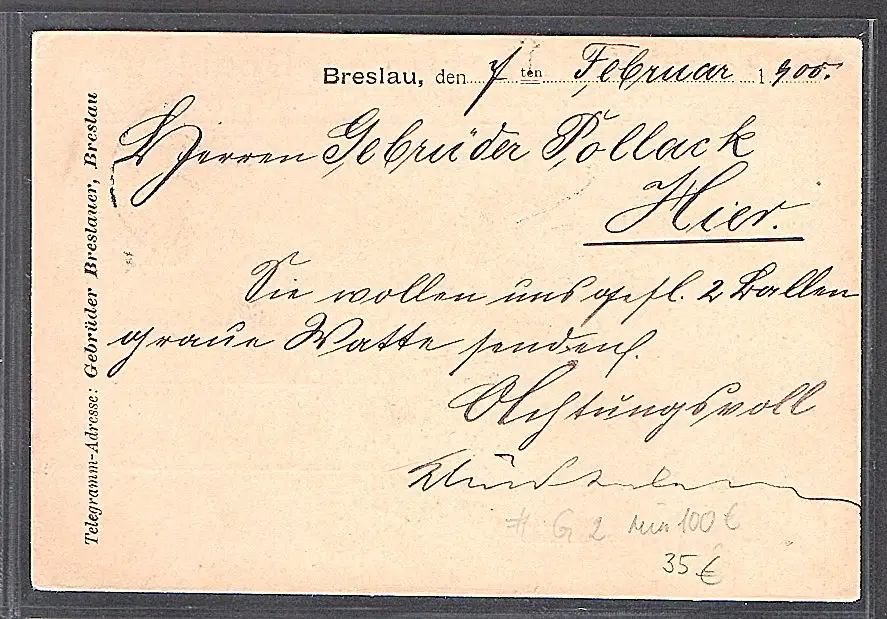 Breslau, den 7 ten Februar 1900.
Herren Gebrüder Pollack
Hier.
Sie wollen uns gefl. 2 Ballen
graue Watte senden.
Achtungsvoll
G 2 100 €
35 €
Telegramm-Adresse: Gebrüder Breslauer, Breslau